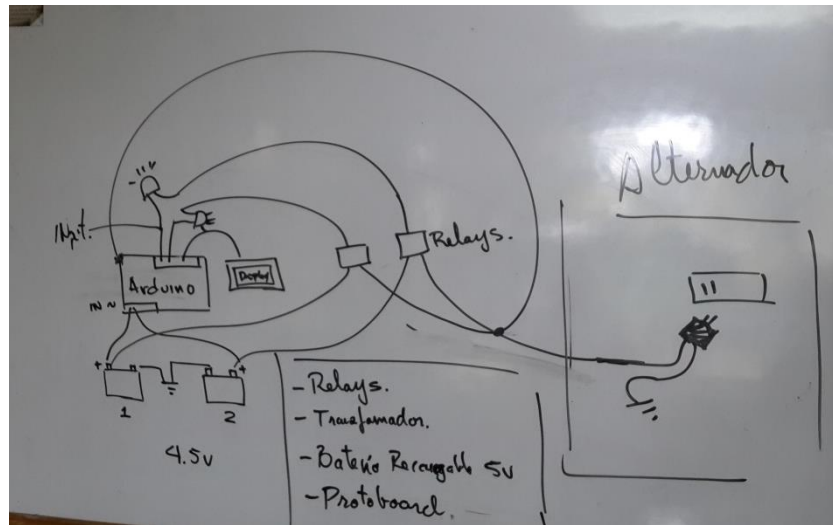 Alternador
Digit.
Relays.
Arduino
Display
IN ~
+
+
1
2
4.5v
- Relays.
- Transformador.
- Batería Recargable 5v
- Protoboard.